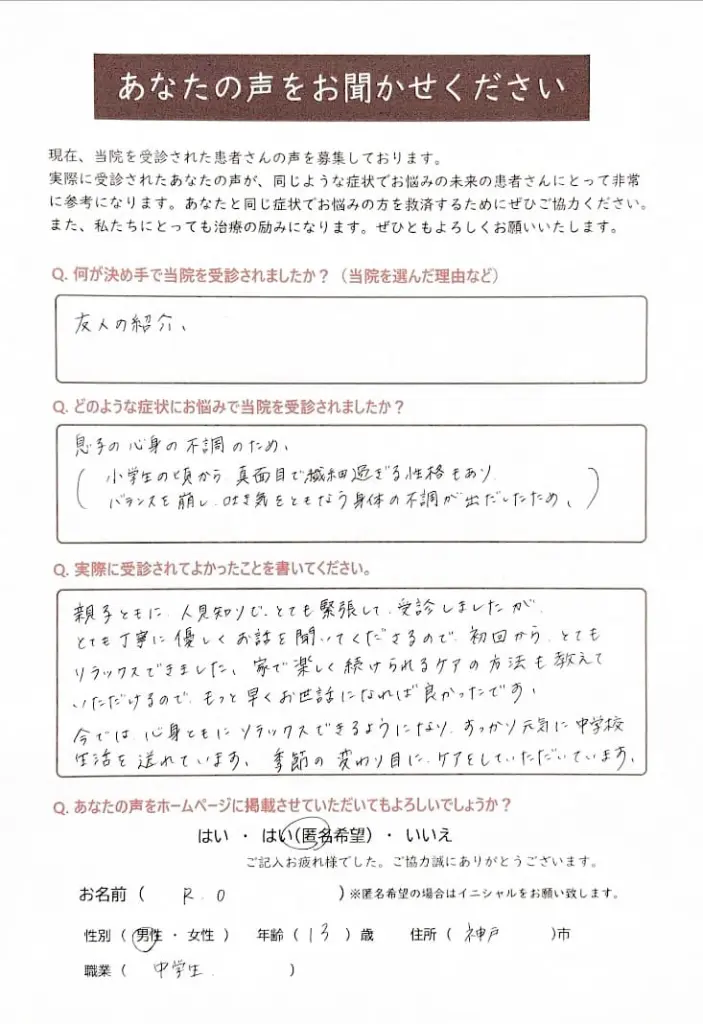 あなたの声をお聞かせください
現在、当院を受診された患者さんの声を募集しております。
実際に受診されたあなたの声が、同じような症状でお悩みの未来の患者さんにとって非常
に参考になります。あなたと同じ症状でお悩みの方を救済するためにぜひご協力ください。
また、私たちにとっても治療の励みになります。ぜひともよろしくお願いいたします。
Q. 何が決め手で当院を受診されましたか？（当院を選んだ理由など）
友人の紹介、
Q. どのような症状にお悩みで当院を受診されましたか？
息子の心身の不調のため、
（小学生の頃から真面目で繊細過ぎる性格もあり
バランスを崩し、吐き気をともなう身体の不調が出だしたため、）
Q. 実際に受診されてよかったことを書いてください。
親子ともに、人見知りで、とても緊張して、受診しましたが、
とても丁寧に優しくお話を聞いてくださるので、初回から、とても
リラックスできました、家で楽しく続けられるケアの方法も教えて
いただけるので、もっと早くお世話になれば良かったです、
今では、心身ともにリラックスできるようになり、すっかり元気に中学校
生活を送れています、季節の変わり目に、ケアをしていただいています、
Q. あなたの声をホームページに掲載させていただいてもよろしいでしょうか？
はい ・ はい(匿名希望) ・ いいえ
ご記入お疲れ様でした。ご協力誠にありがとうございます。
お名前（ R.O ）※匿名希望の場合はイニシャルをお願い致します。
性別（ 男性 ・ 女性 ） 年齢（ 13 ）歳 住所（ 神戸 ）市
職業（ 中学生. ）